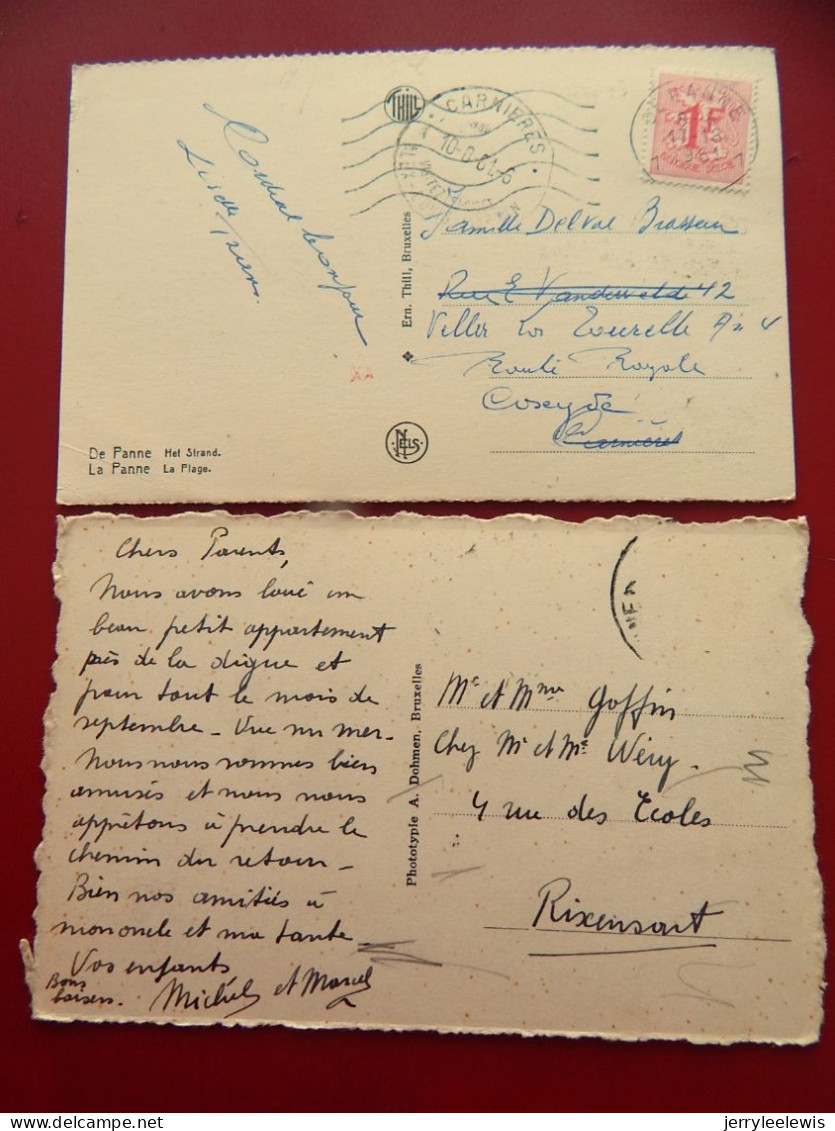 THILL
CARNIERES
10-8-61-6
PANNE
1F
BELGIQUE BELGIE
1961
Cordial bonjour
Famille Delval Brasseur
Rue E Vandervelde 42
Route Royale
Coxyde
Carnières
Ern. Thill, Bruxelles
NELS
De Panne Het Strand.
La Panne La Plage.
Chers Parents,
Nous avons loué un
beau petit appartement
près de la digue et
pour tout le mois de
septembre - Vue sur mer -
Nous nous sommes bien
amusés et nous nous
apprêtons à prendre le
chemin du retour -
Bien nos amitiés à
mononcle et ma tante
Vos enfants
Bons
baisers.
Michel et Marcel
Phototypie A. Dohmen, Bruxelles
Mr et Mme Goffin
Chez Mr et Me Wéry.
4 rue des Ecoles
Rixensart
jerryleelewis